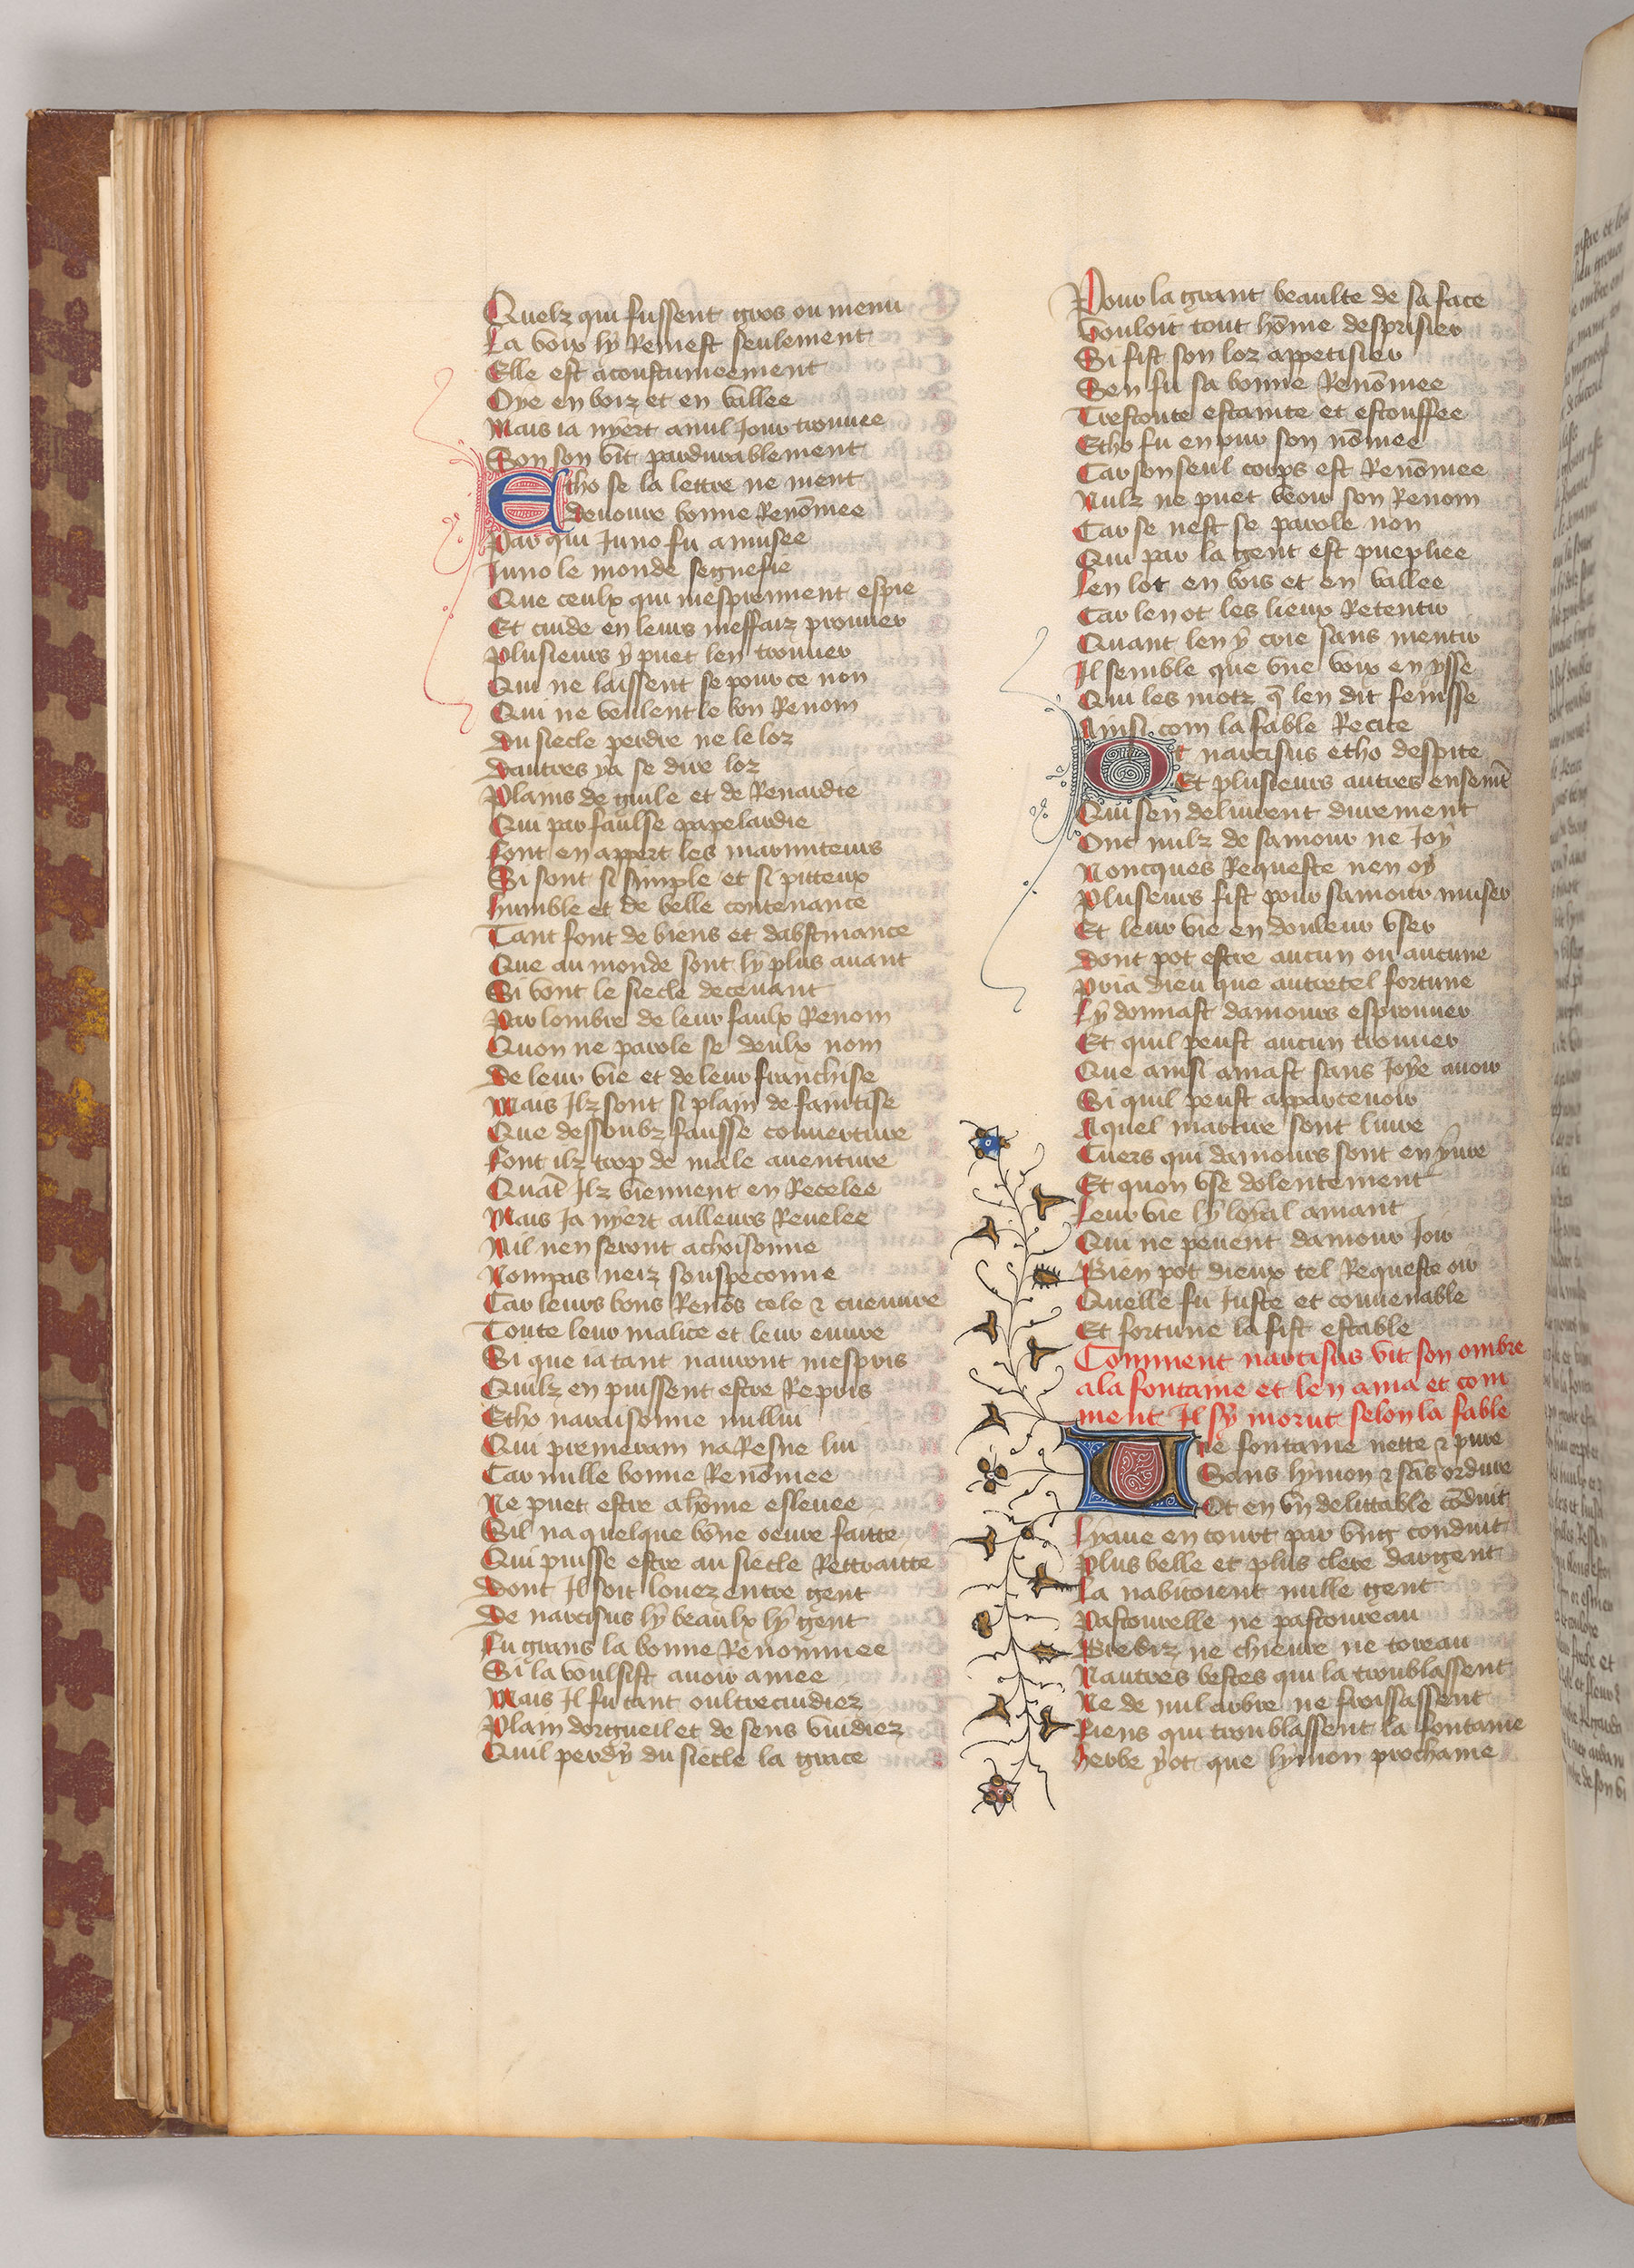 Quelz qui fussent gros ou menu
La voix ly Remest seulement
Elle est acoustumeement
Oye en boiz et en vallee
Mais ia nyert a nul Jour trouuee
Son son vit pardurablement
Etho se la lettre ne ment
denoure bonne Renõmee
Par qui Juno fu amusee
Juno le monde segnefie
Que ceulx qui mesprennent espie
Et cuide en leurs meffaiz prouuer
Plusieurs y puet len trouuer
Qui ne laissent se pour ce non
Qui ne veulent le bon Renom
du siecle perdre ne le loz
dautres ya se dire loz
Plains de guile et de Renardie
Qui par faulse papelardie
font en appert les marmiteurs
Si sont si simple et si pitteux
humble et de belle contenance
Tant font de biens et dabstinance
Que au monde sont ly plus auant
Si vont le siecle deceuant
Par lombre de leur faulx Renom
Quon ne parole se deulx nom
De leur vie et de leur franchise
Mais Ilz sont si plain de faintise
Que dessoubz fausse couuerture
font ilz trop de male auenture
Quãt Ilz viennent en Recelee
Mais Ja nyert ailleurs Reuelee
Nil nen seront achoisonne
Nompas neiz souspeconne
Car leurs bons Renõs cele ⁊ cueuure
Toute leur malice et leur euure
Si que ia tant nauront mespris
Quilz en puissent estre Repris
Etho naraisonne nullui
Qui premeram na Resne lui
Car nulle bonne Renõmee
Ne puet estre a hõme esleuee
Sil na quelque bõne oeuure faitte
Qui puisse estre au siecle Rettraitte
dont Il soit louez entre gent
De narcisus ly beaulx ly gent
Fu grans la bonne Renommee
Si la voulsist auoir amee
Mais Il fu tant oultrecuidiez
Plain dorgueil et de sens vuidiez
Quil perdy du siecle la grace
Pour la grant beaulte de sa face
Vouloit tout hõme desprisier
Si fist son loz appetisier
Sen fu sa bonne Renõmee
Trestoute estainte et estouffee
Etho fu en pur son nõmee
Car son seul corps est Renõmee
Nulz ne puet veoir son Renom
Car se nest se parole non
Qui par la gent est puepliee
Len lot en bois et en vallee
Car len ot les lieux Retentir
Quant len y crie sans mentir
Il semble que vne voix en ysse
Qui les motz q̃ len dit fenisse
Ainsi com la fable Recite
Ot narcisus etho despite
Et plusieurs autres ensemt̃
Qui sen deliurent durement
Onc nulz de samour ne Joy
Noncques Requeste nen oy
Pluseurs fist pour samour muser
Et leur vie en douleur vser
dont pot estre aucun ou aucune
Pria dieu que autretel fortune
Ly donnast damours esprouuer
Et quil peust aucun trouuer
Que ainsi amast sans Joye auoir
Si quil peust apparceuoir
Aquel martire sont liure
Cuers qui damours sont enyure
Et quon vse dolentement
Leur vie ly loyal amant
Qui ne peuent damour Joir
Bien pot dieux tel Requeste oir
Quelle fu Juste et conuenable
Et fortune la fist estable
Comment narcisus vit son ombre
a la fontaine et len ama et com
ment Il sy morut selon la fable
Vne fontaine nette ⁊ pure
Sans lymon ⁊ sãs ordure
Ot en vn delittable cõduit
Lyaue en court par vng conduit
Plus belle et plus clere dargent
La nabitoient nulle gent
Pastourelle ne pastoureau
Brebiz ne chieure ne toreau
Nautres bestes qui la troublassent
Ne de nul arbre ne froissassent
Riens qui troublassent la fontaine
herbe yot que lymon prochaine